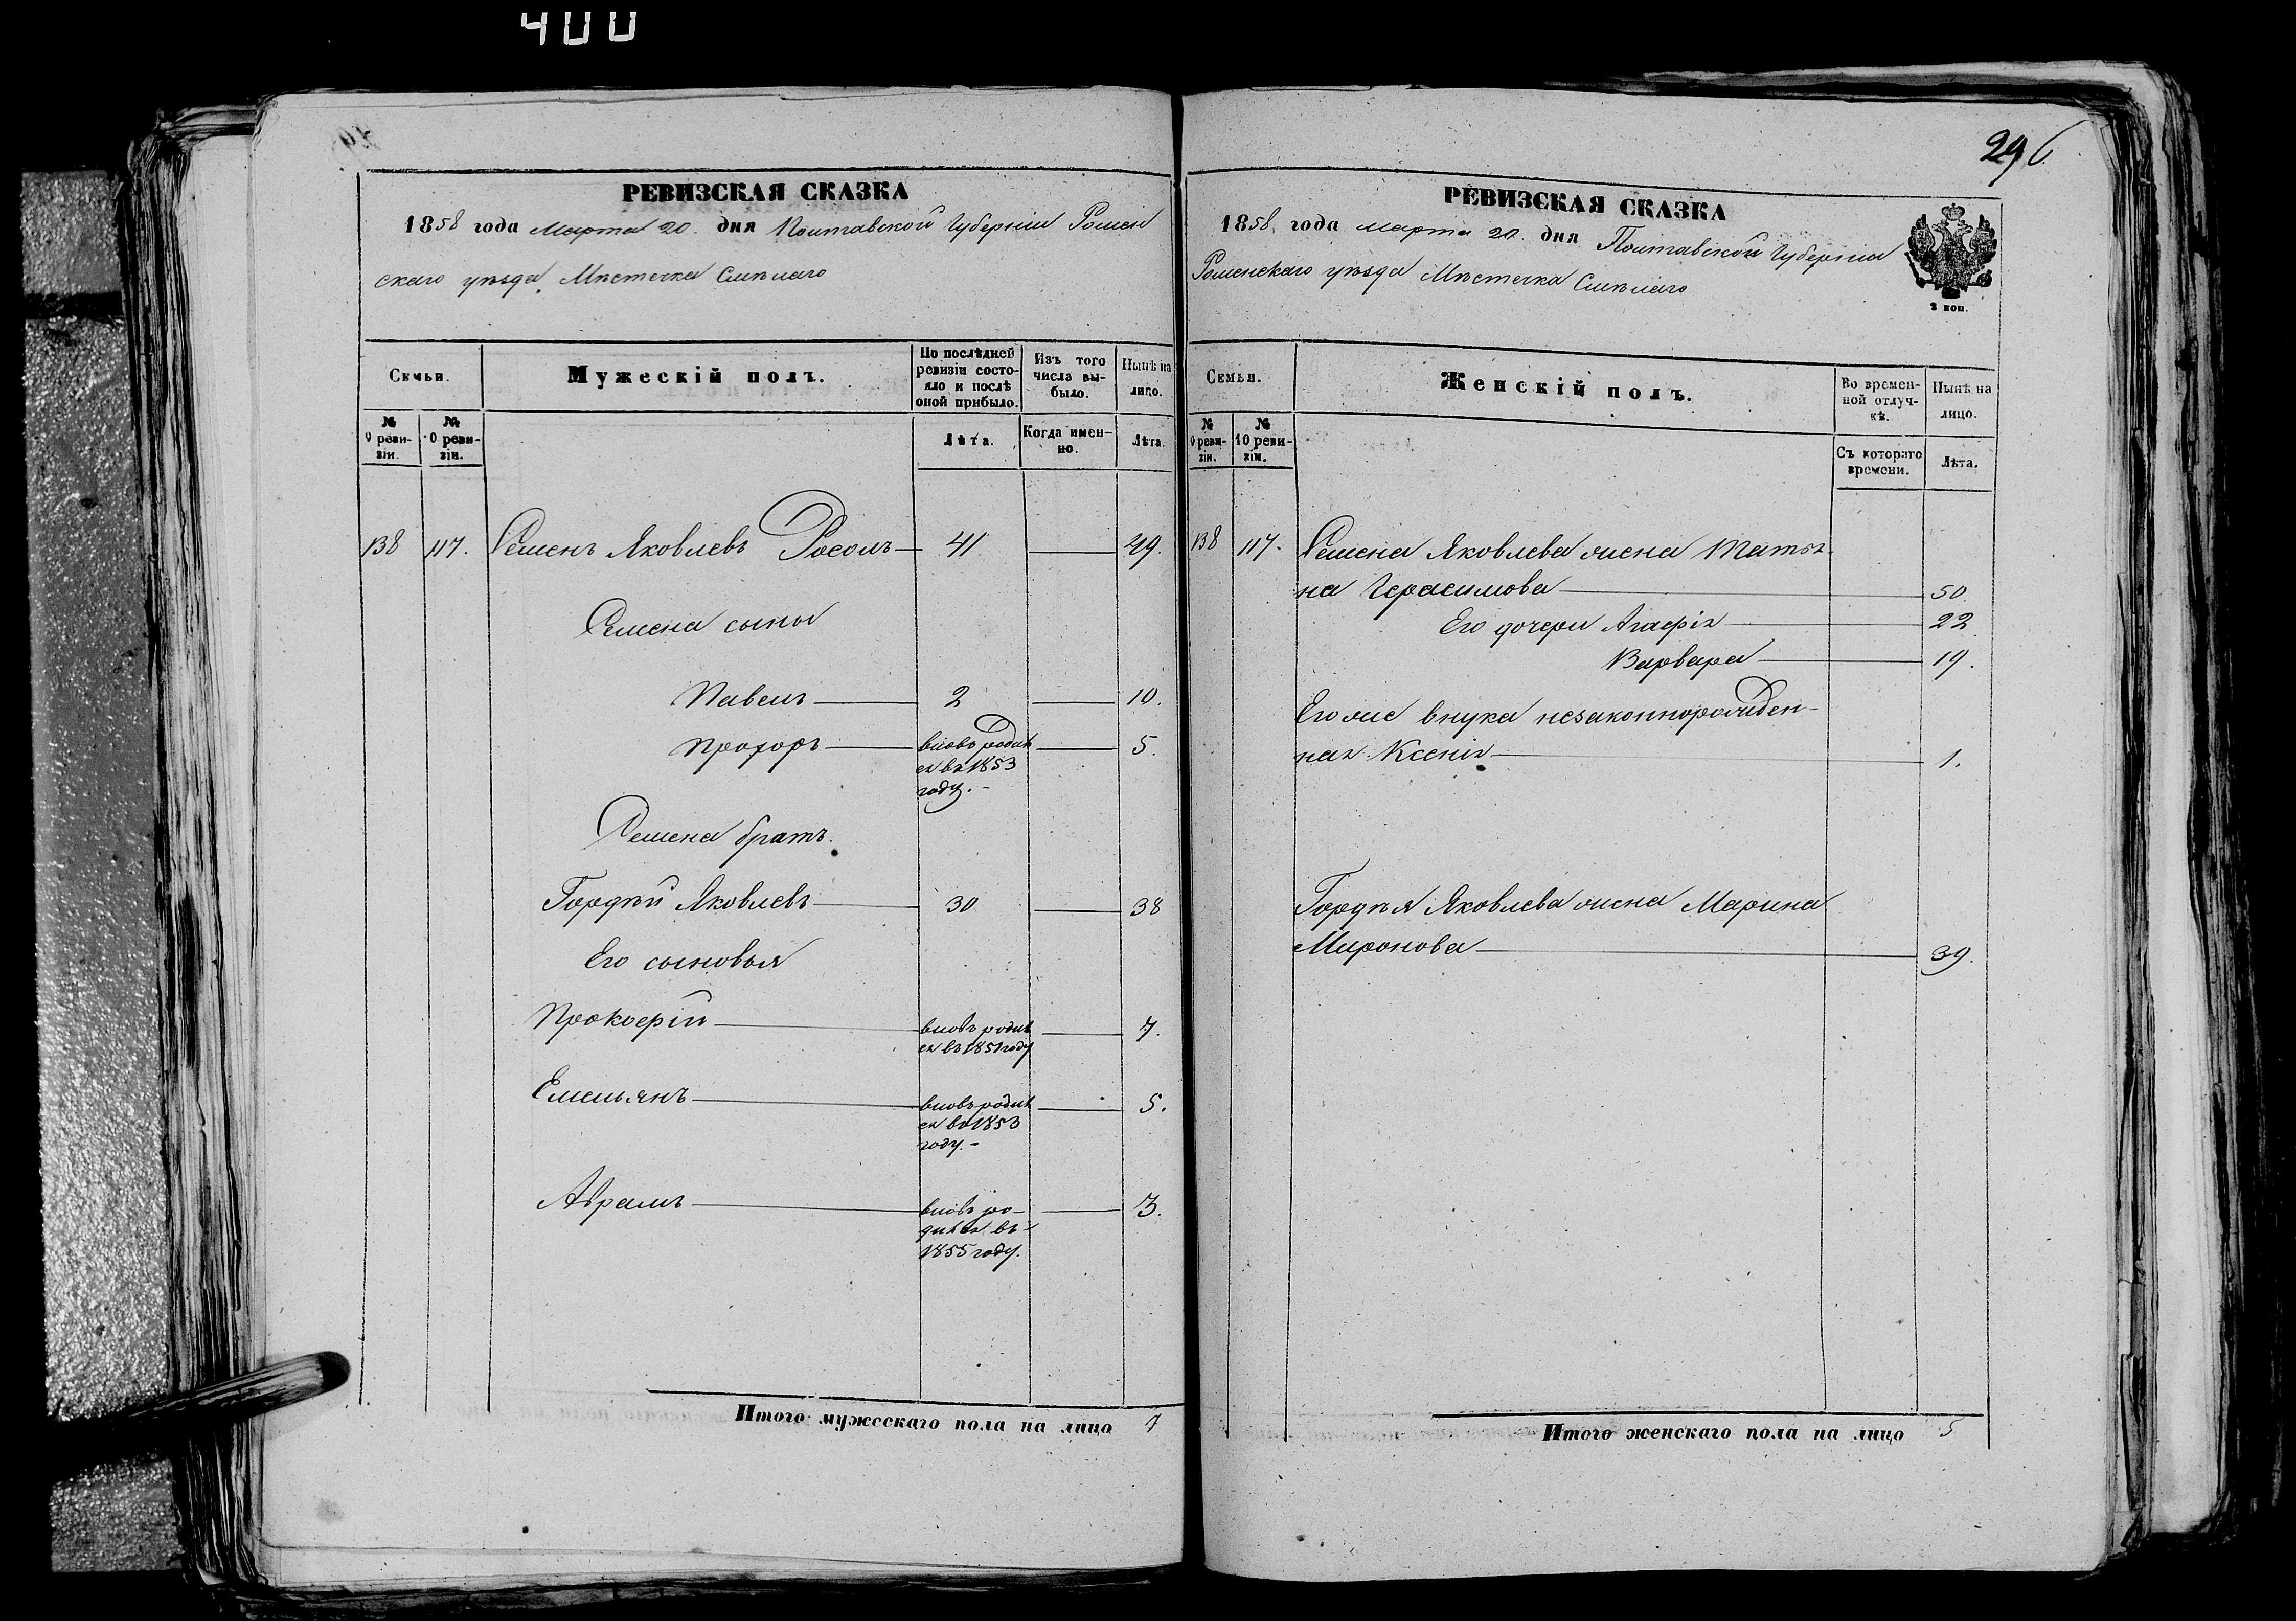 400
296
РЕВИЗСКАЯ СКАЗКА
1858 года Марта 20. дня Полтавской Губерніи Ромен
скаго уѣзда, Мѣстечка Смѣлаго
Семьи.
Мужескій полъ.
По послѣдней ревизіи состояло и послѣ оной прибыло.
Изъ того числа выбыло.
Нынѣ на лицо.
№ 9 ревизіи.
№ 10 ревизіи.
Лѣта.
Когда именно.
Лѣта.
138 117. Семенъ Яковлевъ Росолъ 41 49.
Семена сыны
Павелъ 2 10.
Прохоръ вновь родил 5.
ся въ 1853
году.
Семена братъ.
Гордѣй Яковлевъ 30 38
Его сыновья
Прокофій вновь родил 7.
ся въ 1851 году
Емельянъ вновь родил 5.
ся въ 1853
году.
Абрамъ вновь ро- 3.
дился въ
1855 году.
Итого мужескаго пола на лицо 7
РЕВИЗСКАЯ СКАЗКА
1858, года марта 20. дня Полтавской Губерніи
Роменскаго уѣзда Мѣстечка Смѣлаго
2 коп.
Семьи.
Женскій полъ.
Во временной отлучкѣ.
Нынѣ на лицо.
№ 9 ревизіи.
№ 10 ревизіи.
Съ котораго времени.
Лѣта.
138 117. Семена Яковлева жена Матрг
на Герасимова 50
Его дочери Агафія 22
Варвара 19.
Его же внука незаконнорожден-
ная Ксенія 1.
Гордѣя Яковлева жена Марина
Миронова 39.
Итого женскаго пола на лицо 5